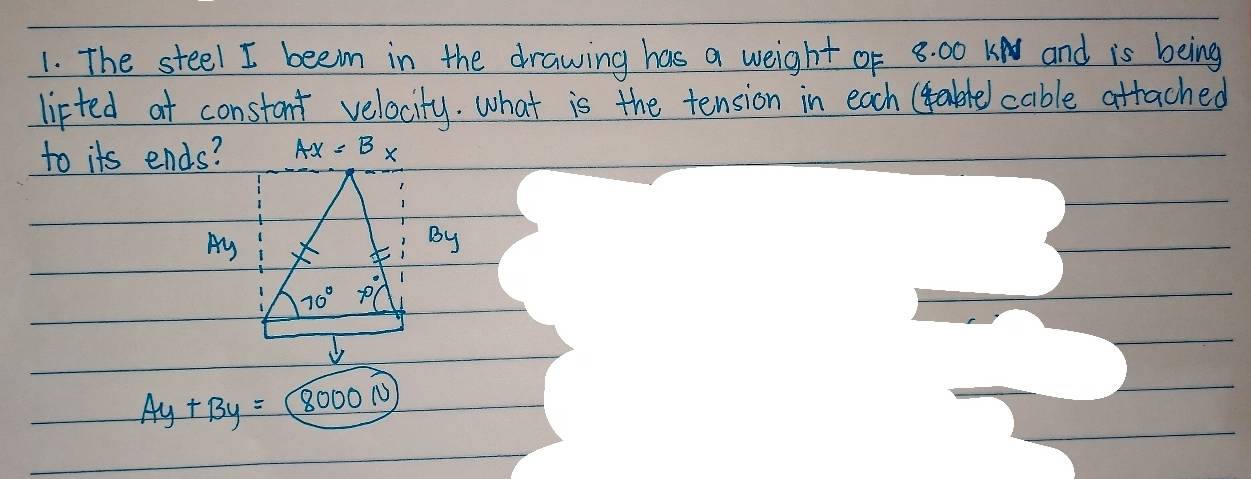 1. The steel I beem in the drawing has a weight of 8.00 KN and is being
lifted at constant velocity. What is the tension in each cable attached
to its ends?
Ax = Bx
Ay By
70° 70°
Ay + By = 8000 N